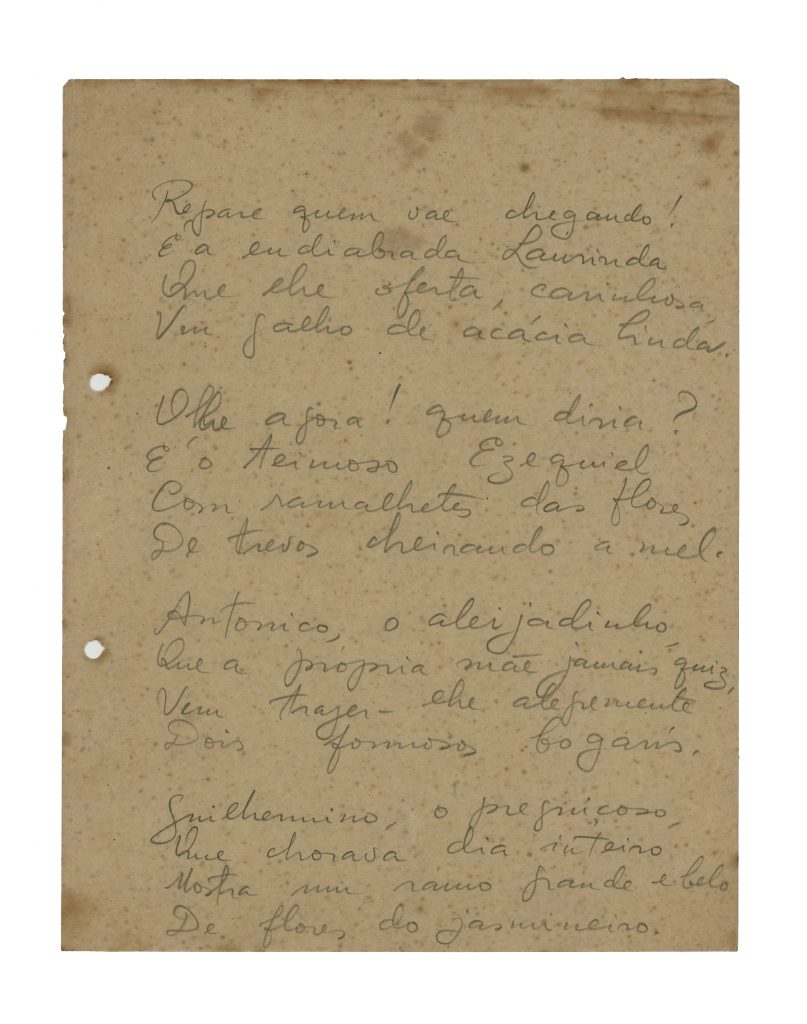 Repare quem vae chegando!
É a endiabrada Laurinda
Que lhe oferta, carinhosa,
Um galho de acácia linda.
Olhe agora! quem diria?
E' o teimoso Ezequiel
Com ramalhetes das flores
De trevos cheirando a mel.
Antonico, o aleijadinho,
Que a própria mãe jamais quiz,
Vem trazer-lhe alegremente
Dois formosos bogaris.
Guilhermino, o preguiçoso,
Que chorava dia inteiro
Mostra um ramo grande e belo
De flores do jasmineiro.